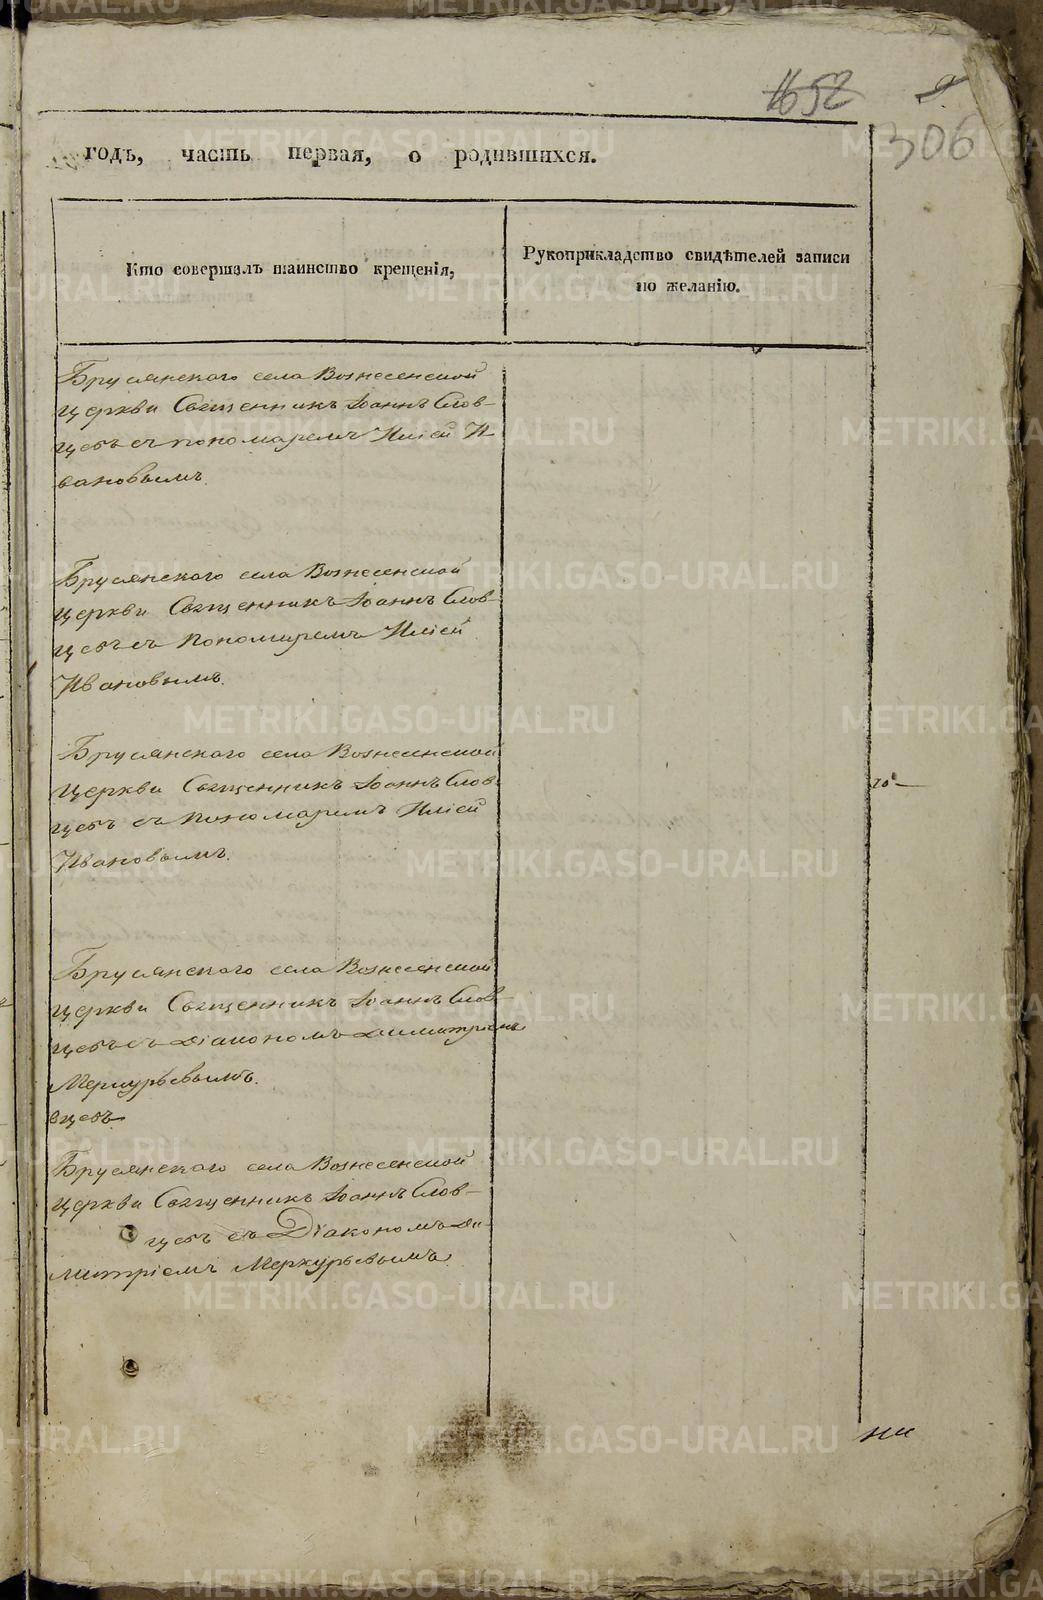 1652
306
годъ, часть первая, о родившихся.
Кто совершалъ таинство крещенія,
Рукоприкладство свидѣтелей записи
по желанію.
Брусянскаго села Вознесенской
церкви Священникъ Іоаннъ Слов-
цевъ съ пономаремъ Иліей И-
вановымъ.
Брусянскаго села Вознесенской
церкви Священникъ Іоаннъ Слов-
цевъ съ Пономаремъ Иліей
Ивановымъ.
Брусянскаго села Вознесенской
церкви Священникъ Іоаннъ Слов-
цевъ съ Пономаремъ Иліей
Ивановымъ.
Брусянскаго села Вознесенской
церкви Священникъ Іоаннъ Слов-
цевъ съ Діакономъ Димитріемъ
Меркурьевымъ.
вцевъ
Брусянскаго села Вознесенской
церкви Священникъ Іоаннъ Слов-
цевъ съ Діакономъ Ди-
митріемъ Меркурьевымъ.
METRIKI.GASO-URAL.RU